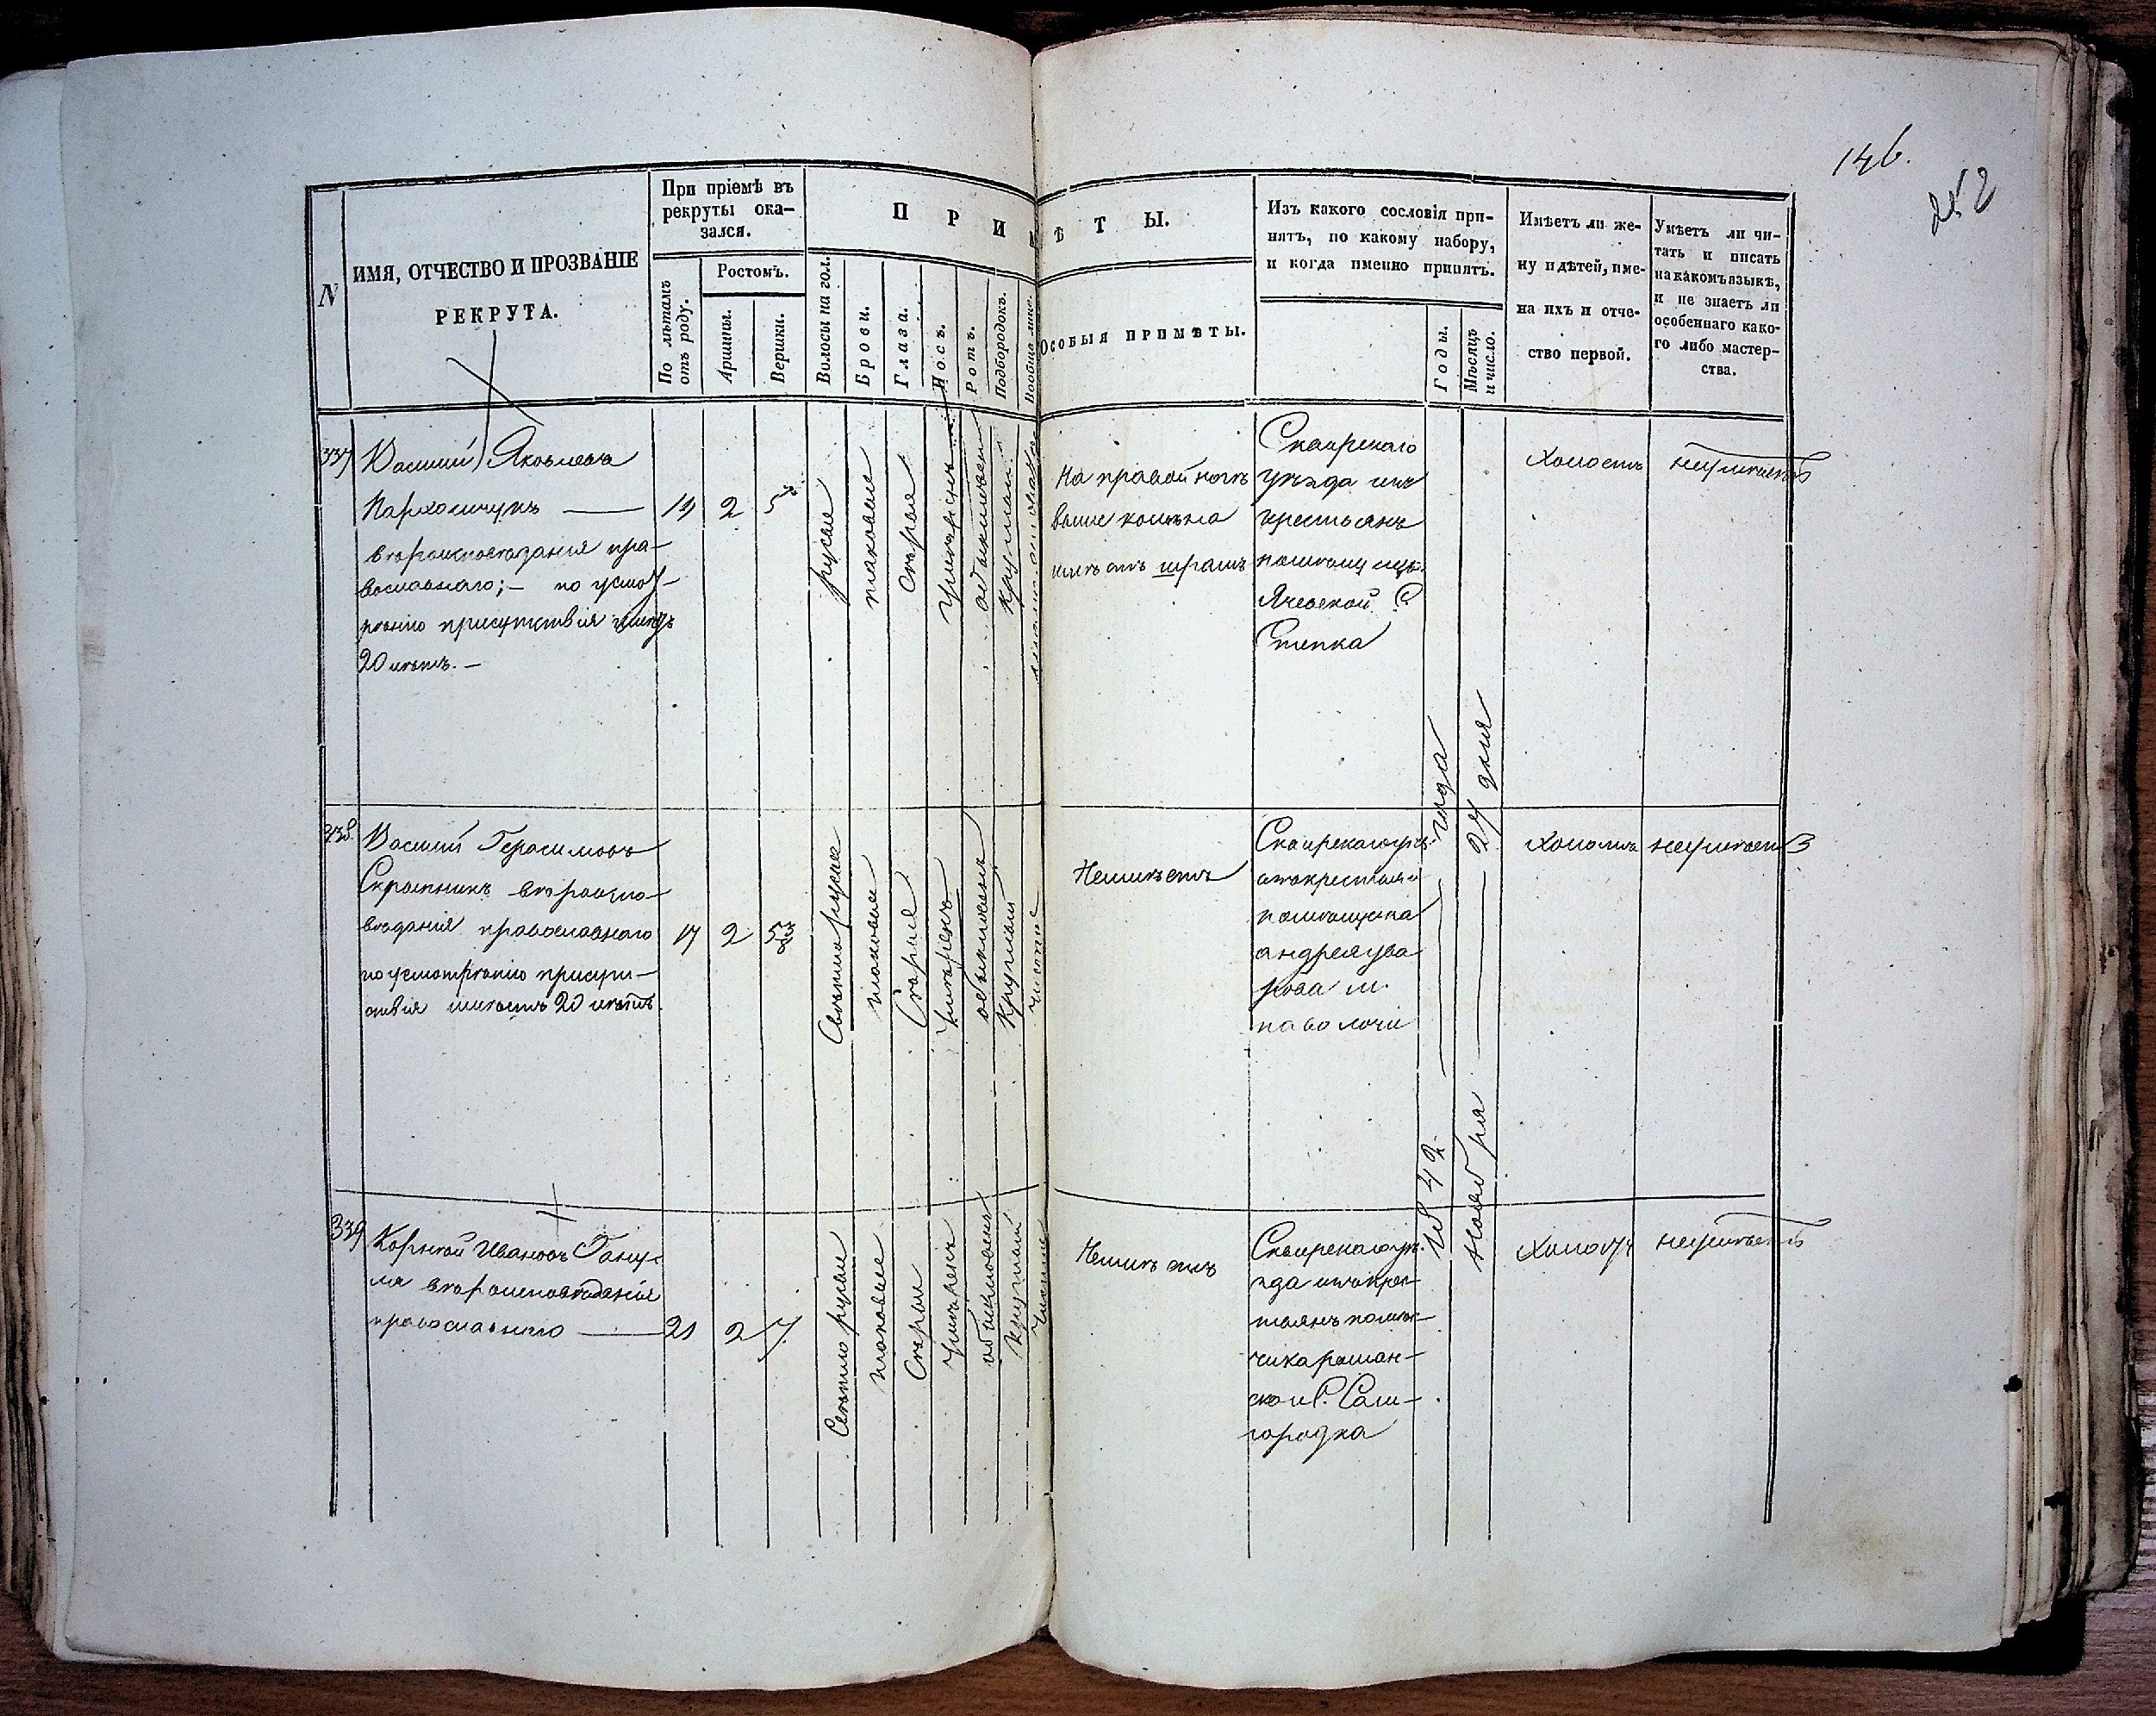 146.
252
N
ИМЯ, ОТЧЕСТВО И ПРОЗВАНІЕ
РЕКРУТА.
При пріемѣ въ
рекруты ока-
зался.
По лѣтамъ
отъ роду.
Ростомъ.
Аршины.
Вершки.
ПРИМѢТЫ.
Волосы на гол.
Брови.
Глаза.
Носъ.
Ротъ.
Подбородокъ.
Вообще лице.
Особыя примѣты.
Изъ какого сословія при-
нятъ, по какому набору,
и когда именно принятъ.
Годы.
Мѣсяцъ
и число.
Имѣетъ ли же-
ну и дѣтей, име-
на ихъ и отче-
ство первой.
Умѣетъ ли чи-
тать и писать
на какомъ языкѣ,
и не знаетъ ли
особеннаго како-
го либо мастер-
ства.
337
Василий Яковлевъ
Пархомчукъ — 19 2 5
вѣроисповѣданія пра-
вославнаго; — по усмо-
трѣнію присутствія
20 лѣтъ. —
русые
таковые
сѣрые
умѣренъ
обыкновенъ
круглый
На правой ногѣ
выше колѣна
имѣетъ шрамъ
Сквирскаго
уѣзда изъ
крестьянъ
помѣщицы
Ячевской С.
Степка
Холостъ
неумѣетъ
338
Василий Герасимовъ
Скрыпникъ вѣроиспо-
вѣданія православнаго 17 2 5
по усмотрѣнію присут-
ствія имѣетъ 20 лѣтъ
Свѣтлорусые
таковые
Сѣрые
умѣренъ
обыкновенъ
круглый
чистое
Неимѣетъ
Сквирскагоуѣ-
помѣщика
андреяува
рова м.
паволочи
1842 года
Ноября 27 дня
Холостъ
неумѣетъ
339
Корнѣй Ивановъ
вѣроисповѣданія
православнаго — 21 2 7
Свѣтло русые
таковые
Сѣрые
умѣренъ
обыкновенъ
круглый
чистое
Неимѣетъ
Сквирскагоуѣ-
зда изъкрес-
тьянъ помѣ-
чикарошан-
ской С. Сам-
городка
Холостъ
неумѣетъ